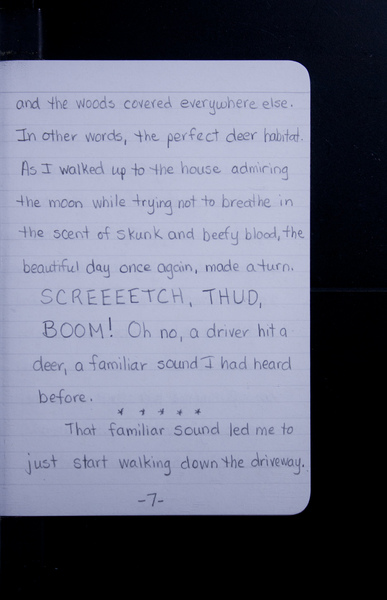 and the woods covered everywhere else.
In other words, the perfect deer habitat.
As I walked up to the house admiring
the moon while trying not to breathe in
the scent of skunk and beefy blood, the
beautiful day once again, made a turn.
SCREEEETCH, THUD,
BOOM! Oh no, a driver hit a
deer, a familiar sound I had heard
before.
* * * * *
That familiar sound led me to
just start walking down the driveway.
-7-